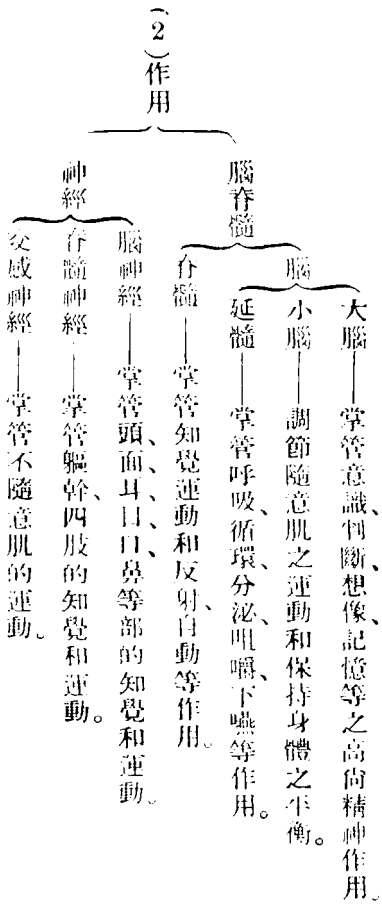 （2）作用
腦脊髓
腦
大腦——掌管意識、判斷、想像、記憶等之高尙精神作用。
小腦——調節隨意肌之運動和保持身體之平衡。
延髓——掌管呼吸、循環、分泌、咀嚼、下嚥等作用。
脊髓——掌管知覺運動和反射、自動等作用。
神經
腦神經——掌管頭、面、耳、目、口、鼻等部的知覺和運動。
脊髓神經——掌管軀幹、四肢的知覺和運動。
交感神經——掌管不隨意肌的運動。